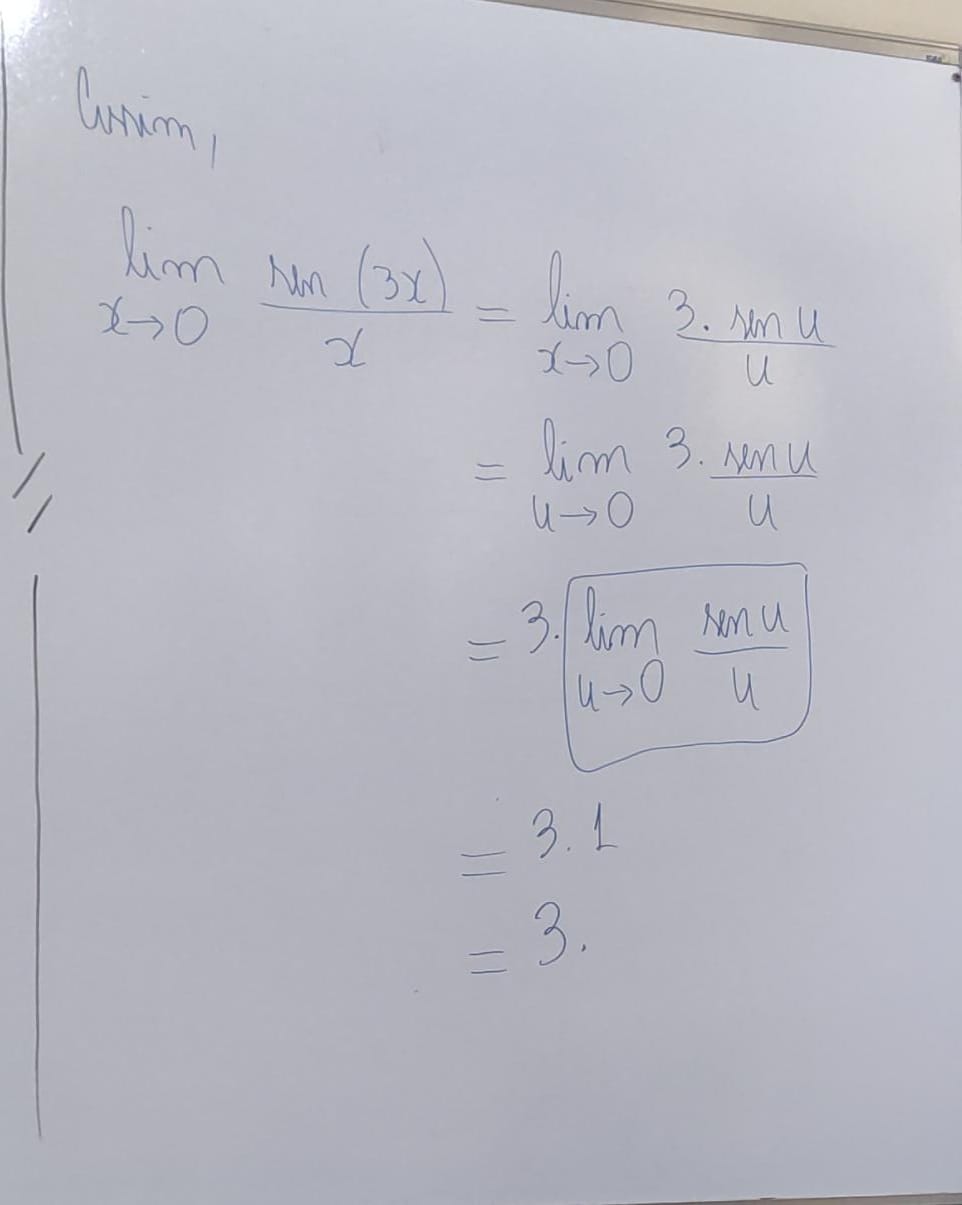 Assim,
lim x→0 sen (3x)/x = lim x→0 3. sen u/u
= lim u→0 3. sen u/u
= 3. lim u→0 sen u/u
= 3. 1
= 3.